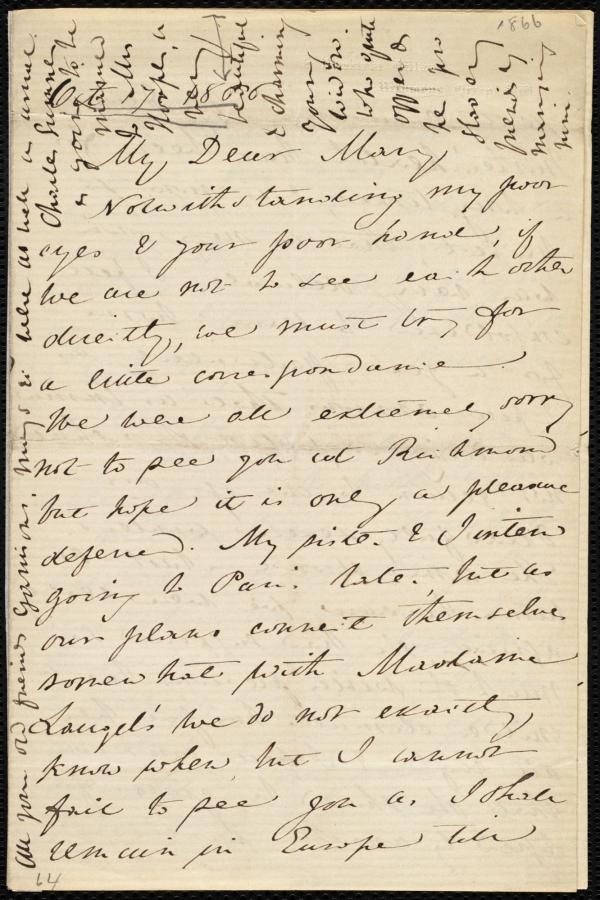 1866
Oct 17 1866
My Dear Mary,
Notwithstanding my poor
eyes & your poor hand, if
we are not to see each other
directly, we must try for
a little correspondance.
We were all extremely sorry
not to see you at Richmond
but hope it is only a pleasure
deferred. My sister & I intend
going to Paris later, but as
our plans connect themselves
somewhat with Madame
Laugel's we do not exactly
know when, but I cannot
fail to see you as I shall
remain in Europe till
64
All your old friends Garrisons, Mays &c were as well as usual.
Charles Sumner
is going to be
married
Mrs
Hooper, a
very
beautiful
& charming
young
widow.
who quite
opposed
he pro
slavery
friends by
marrying
him.